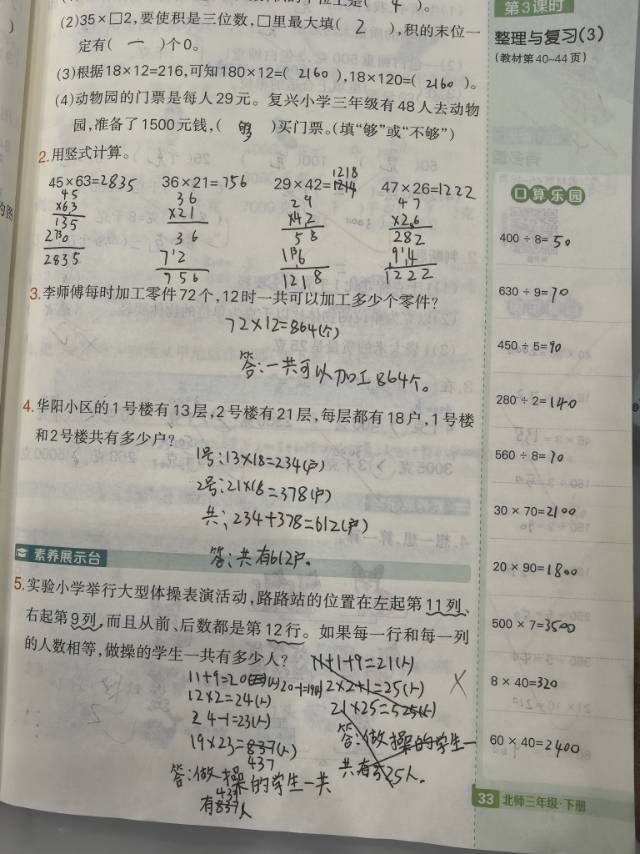 (2)35×□2,要使积是三位数,□里最大填( 2 ),积的末位一
定有( 一 )个0。
(3)根据18×12=216,可知180×12=( 2160 ),18×120=( 2160 )。
(4)动物园的门票是每人29元。复兴小学三年级有48人去动物
园,准备了1500元钱,( 够 )买门票。(填“够”或“不够”)
2.用竖式计算。
45×63=2835 36×21=756 29×42=1218 47×26=1222
45 36 29 47
×63 ×21 ×42 ×26
135 36 58 282
270 72 116 94
2835 756 1218 1222
3.李师傅每时加工零件72个,12时一共可以加工多少个零件?
72×12=864(个)
答:一共可以加工864个。
4.华阳小区的1号楼有13层,2号楼有21层,每层都有18户,1号楼
和2号楼共有多少户?
1号:13×18=234(户)
2号:21×18=378(户)
共:234+378=612(户)
答:共有612户。
素养展示台
5.实验小学举行大型体操表演活动,路路站的位置在左起第11列、
右起第9列,而且从前、后数都是第12行。如果每一行和每一列
的人数相等,做操的学生一共有多少人?
11+1+9=21(人)
11+9=20(人) 20-1=19(人)
12×2+1=25(人)
12×2=24(人)
21×25=525(人)
24-1=23(人)
19×23=837(人)
437
答:做操的学生一
共有525人。
答:做操的学生一共
437
有837人
第3课时
整理与复习(3)
(教材第40~44页)
口算乐园
400÷8=50
630÷9=70
450÷5=90
280÷2=140
560÷8=70
30×70=2100
20×90=1800
500×7=3500
8×40=320
60×40=2400
33 北师三年级·下册